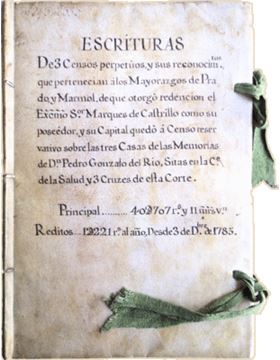 ESCRITURAS
De 3 Censos perpetuos, y sus reconocim.tos
que pertenecian á los Mayorazgos de Pra-
do y Marmol, de que otorgò redencion el
Excmo S.or Marques de Castrillo como su
poseedor, y su Capital quedó á Censo reser
vativo sobre las tres Casas de las Memorias
de D.n Pedro Gonzalo del Rio, Sitas en la C.e
de la Salud y 3 Cruzes de esta Corte.
Principal .......... r.s y 11 m̃rs v.n
Reditos ... r.s al año, Desde 3 de D.bre de 1785.